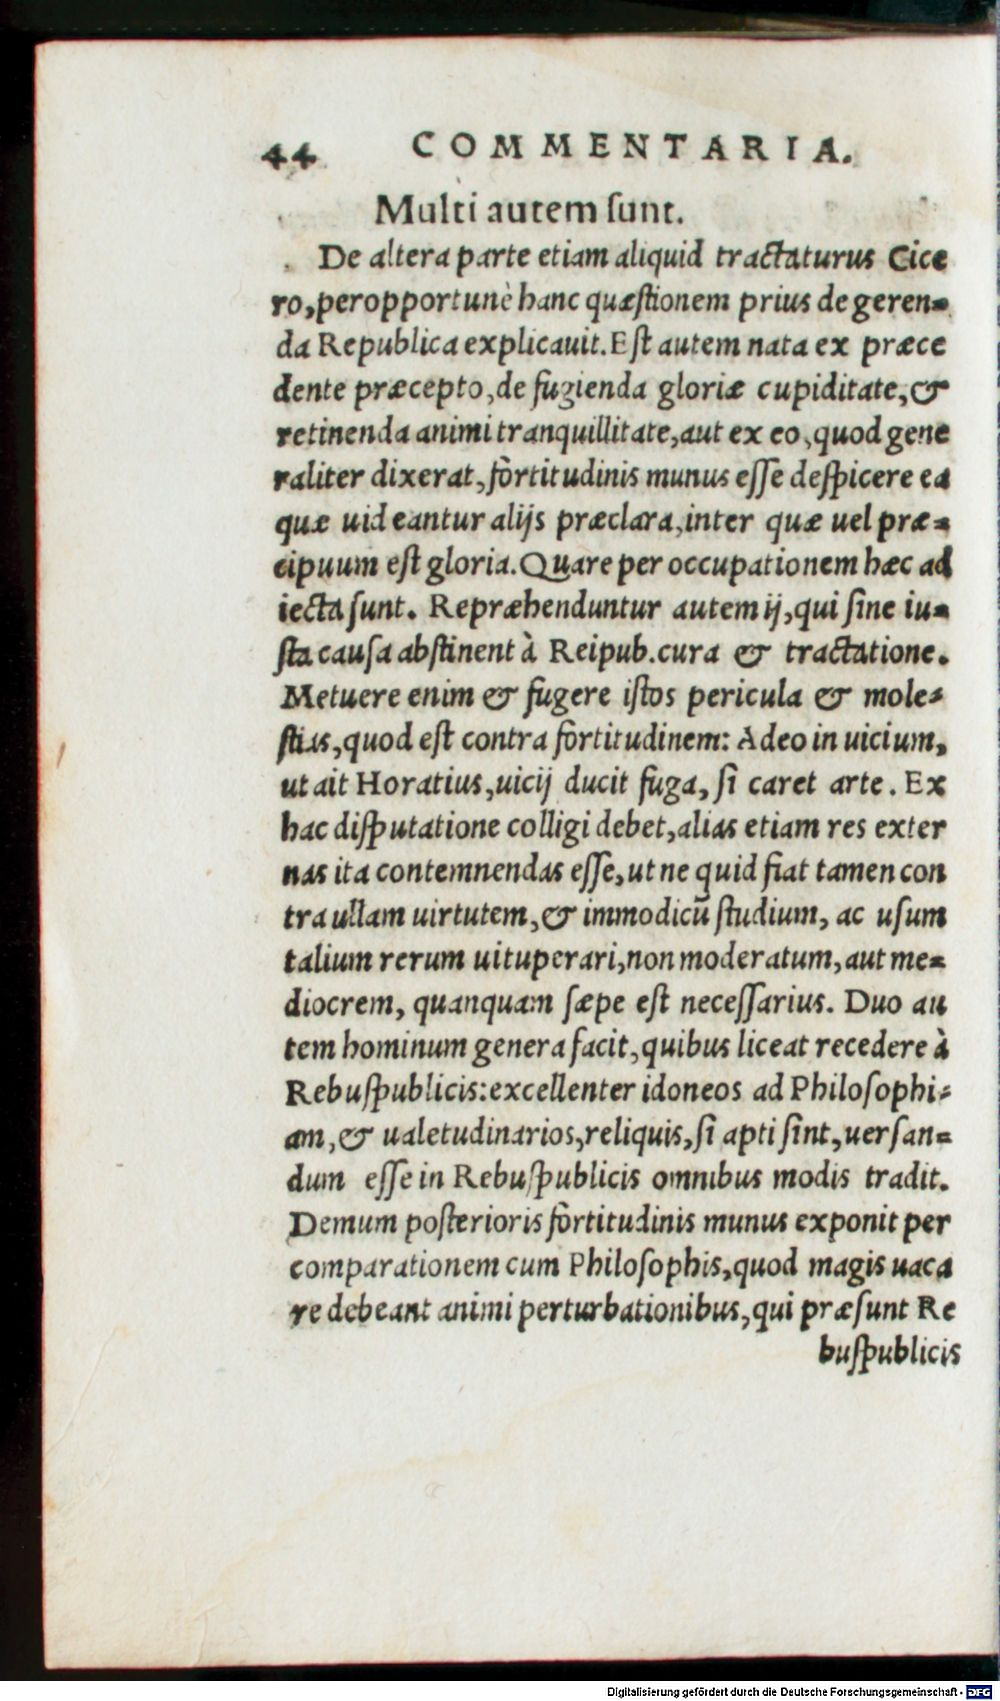 44 COMMENTARIA.
Multi autem sunt.
De altera parte etiam aliquid tractaturus Cice
ro, peropportunè hanc quæstionem prius de geren=
da Republica explicauit. Est autem nata ex præce
dente præcepto, de fugienda gloriæ cupiditate, &
retinenda animi tranquillitate, aut ex eo, quod gene
raliter dixerat, fortitudinis munus esse despicere ea
quæ uideantur alijs præclara, inter quæ uel præ=
cipuum est gloria. Quare per occupationem hæc ad
iecta sunt. Repræhenduntur autem ij, qui sine iu=
sta causa abstinent à Reipub. cura & tractatione.
Metuere enim & fugere istos pericula & mole=
stias, quod est contra fortitudinem: Adeo in uicium,
ut ait Horatius, uicij ducit fuga, si caret arte. Ex
hac disputatione colligi debet, alias etiam res exter
nas ita contemnendas esse, ut ne quid fiat tamen con
tra ullam uirtutem, & immodicū studium, ac usum
talium rerum uituperari, non moderatum, aut me=
diocrem, quanquam sæpe est necessarius. Duo au
tem hominum genera facit, quibus liceat recedere à
Rebuspublicis: excellenter idoneos ad Philosophi=
am, & ualetudinarios, reliquis, si apti sint, uersan=
dum esse in Rebuspublicis omnibus modis tradit.
Demum posterioris fortitudinis munus exponit per
comparationem cum Philosophis, quod magis uaca
re debeant animi perturbationibus, qui præsunt Re
buspublicis
Digitalisierung gefördert durch die Deutsche Forschungsgemeinschaft - DFG